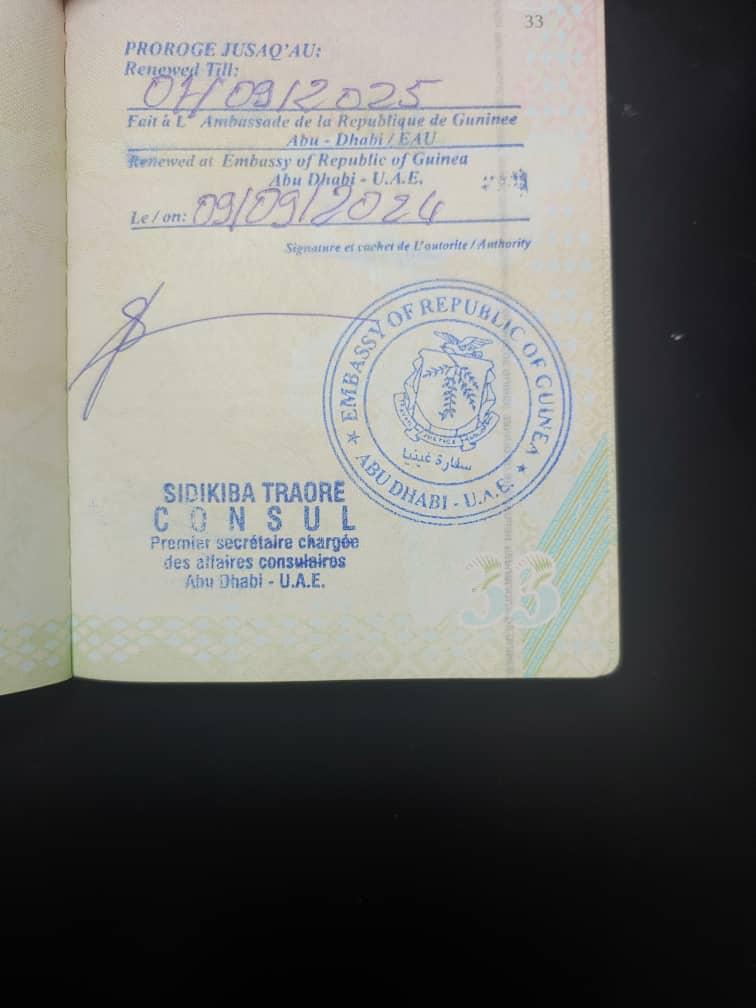 33
PROROGE JUSAQ'AU:
Renewed Till:
07/09/2025
Fait à L' Ambassade de la Republique de Guninee
Abu - Dhabi / EAU
Renewed at Embassy of Republic of Guinea
Abu Dhabi - U.A.E.
Le / on: 09/09/2024
Signature et cachet de L'autorite / Authority
★ EMBASSY OF REPUBLIC OF GUINEA ★
JUSTICE
سفارة غينيا
ABU DHABI - U.A.E.
SIDIKIBA TRAORE
CONSUL
Premier secrétaire chargée
des affaires consulaires
Abu Dhabi - U.A.E.
33